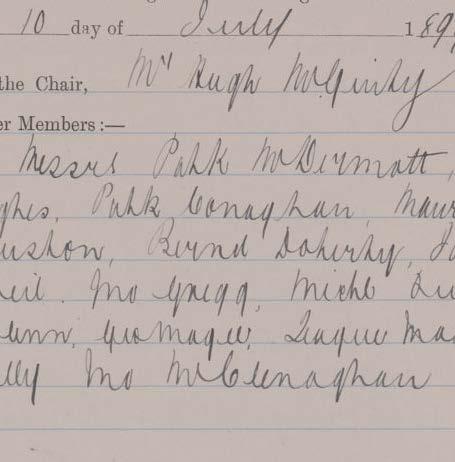 10 day of July 189
the Chair, Mr Hugh McGinty
er Members:—
Messrs Patk McDermott,
ghes, Patk Conaghan, Maur
Bernd Doherty,
eil. Jno Gregg, Michl
unn, Geo Magee, Teague Ma
lly Jno McClenaghan